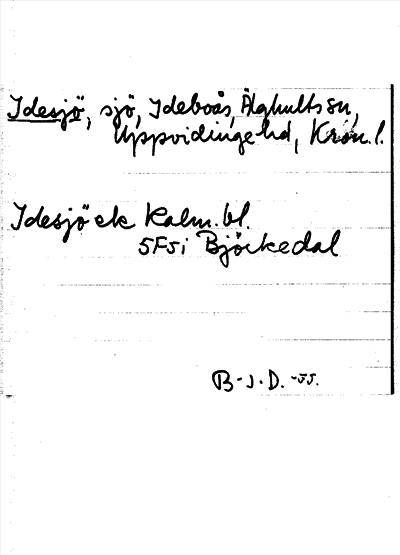 Idesjö, sjö, Ideboås, Älghults sn,
Uppvidinge hd, Kron. l.
Idesjö ek Kalm. bl.
5F5i Björkedal
B-J.D. -55.